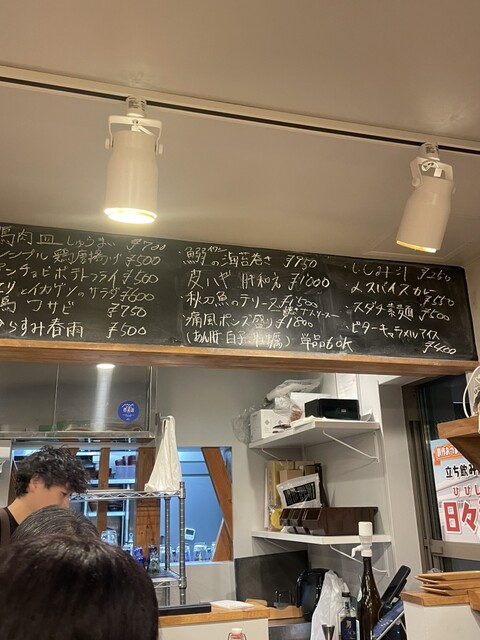 肉皿 しゅうまい ¥700
シンプル鶏唐揚げ ¥500
アンチョビポテトフライ ¥500
とイカゲソのサラダ ¥600
ワサビ ¥750
ひらすみ春雨 ¥500
・鰯の海苔巻き ¥750
皮ハギ 肝和え ¥1000
・秋刀魚のテリーヌ ¥1500
・痛風ポンズ盛り ¥1800
(あん肝 白子 ) 単品もOK
・しじみ汁 ¥250
・〆スパイスカレー ¥550
・スダチ素麺 ¥600
・ビターキャラメルアイス ¥400
立ち飲み
日々